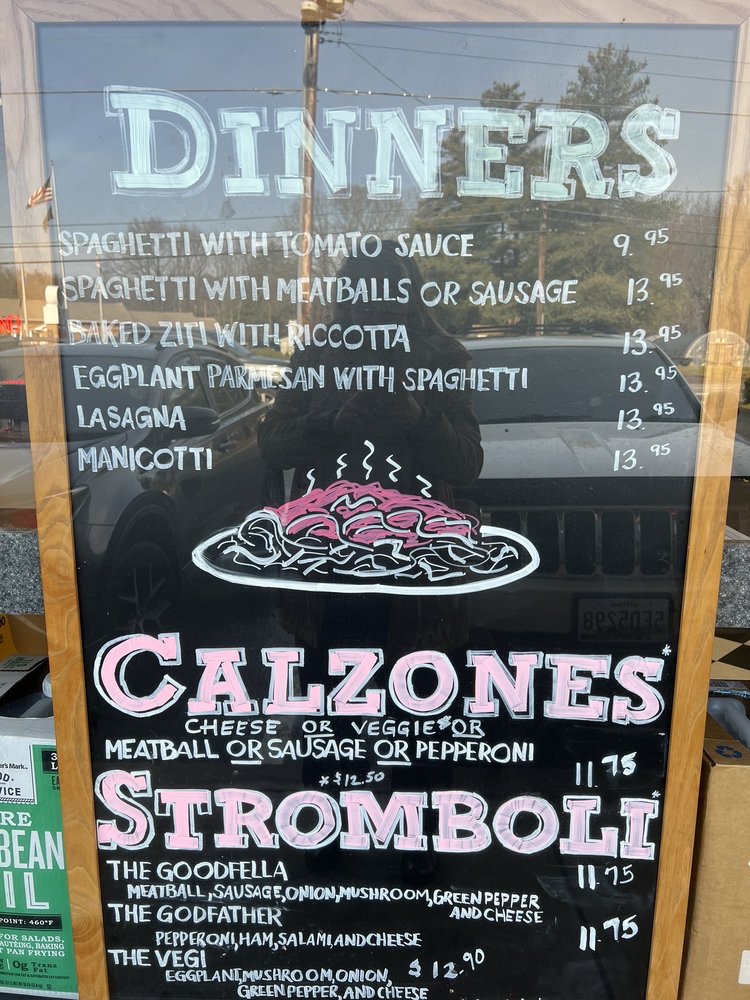 DINNERS
SPAGHETTI WITH TOMATO SAUCE 9.95
SPAGHETTI WITH MEATBALLS OR SAUSAGE 13.95
BAKED ZITI WITH RICCOTTA 13.95
EGGPLANT PARMESAN WITH SPAGHETTI 13.95
LASAGNA 13.95
MANICOTTI 13.95
CALZONES*
CHEESE OR VEGGIE* OR
MEATBALL OR SAUSAGE OR PEPPERONI 11.75
*$12.50
STROMBOLI*
THE GOODFELLA 11.75
MEATBALL, SAUSAGE, ONION, MUSHROOM, GREEN PEPPER
AND CHEESE
THE GODFATHER 11.75
PEPPERONI, HAM, SALAMI, AND CHEESE
THE VEGI $12.90
EGGPLANT, MUSHROOM, ONION,
GREEN PEPPER, AND CHEESE
VICE
BEAN
IL
POINT: 460°F
FOR SALADS,
BAKING
PAN FRYING
0g Trans
Fat